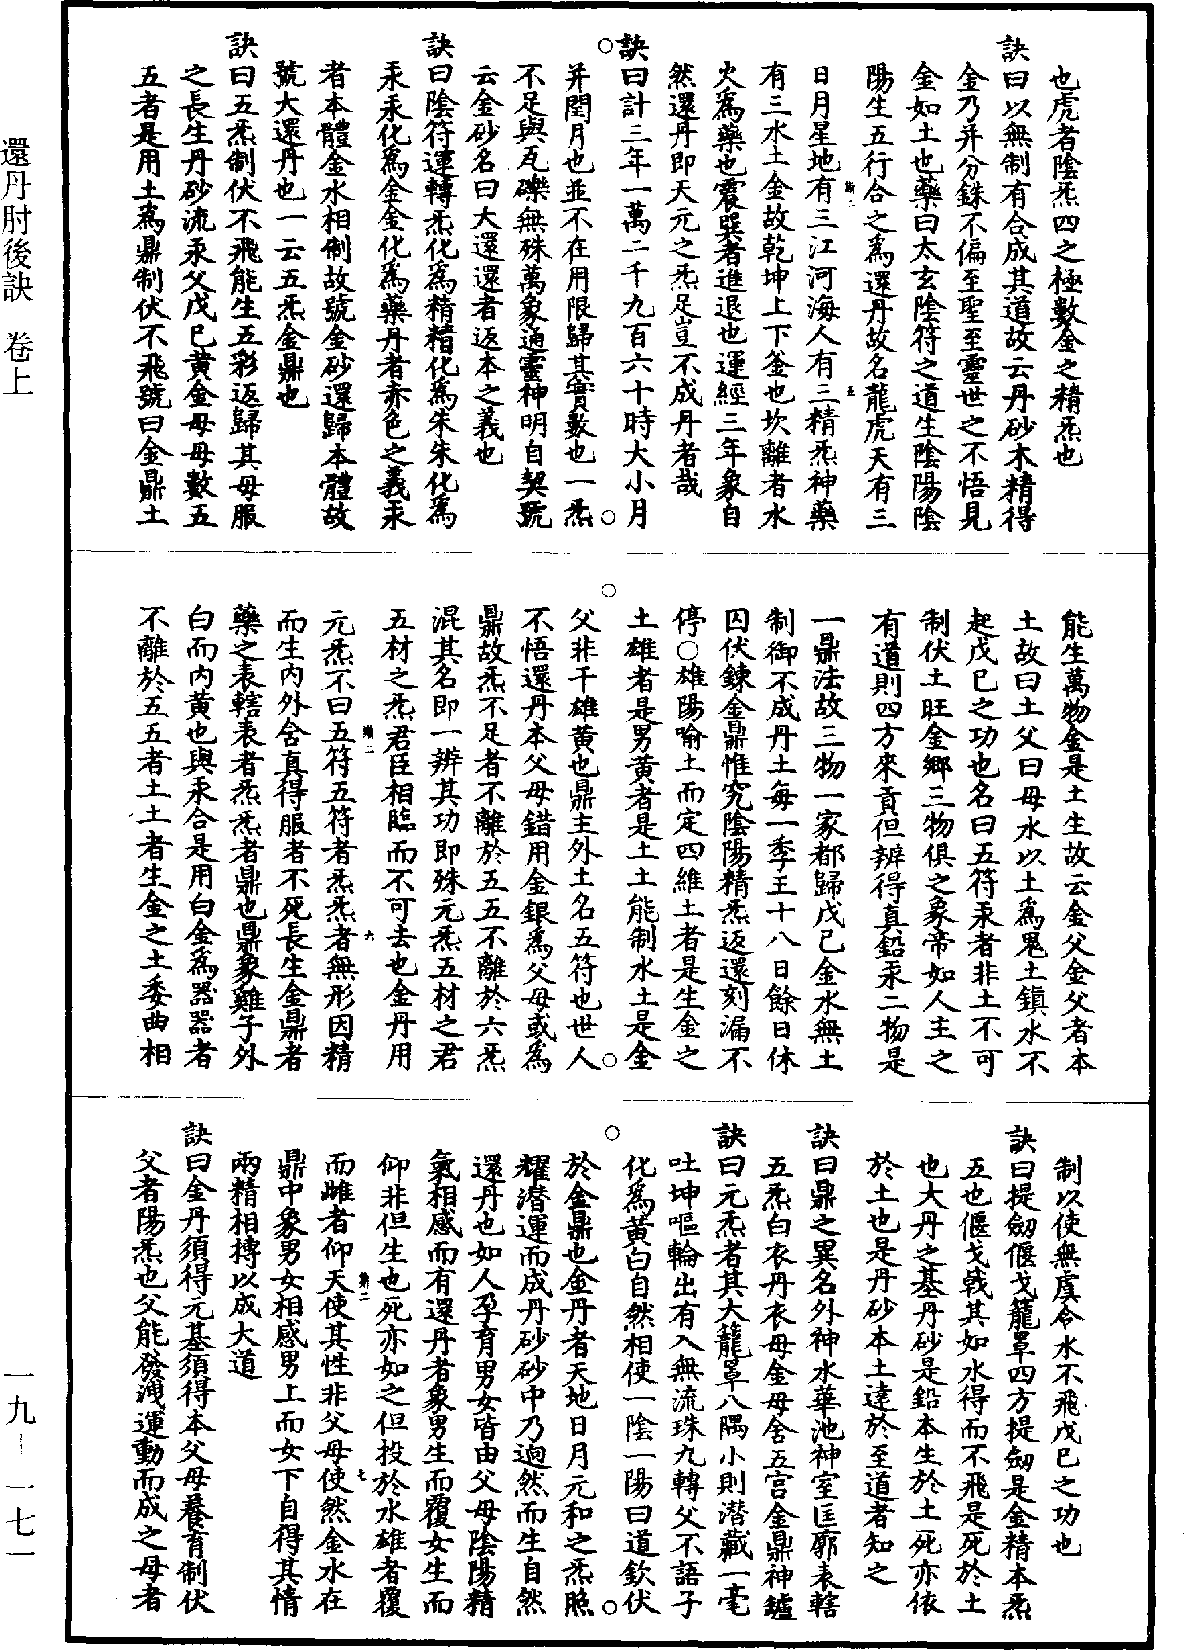 還丹肘後訣　卷上
也虎者陰炁四之極數金之精炁也
訣曰以無制有合成其道故云丹砂木精得
金乃并分銖不偏至聖至靈世之不悟見
金如土也藥曰太玄陰符之道生陰陽陰
陽生五行合之為還丹故名龍虎天有三
日月星地有三江河海人有三精炁神藥
有三水土金故乾坤上下釜也坎離者水
火為藥也震巽者進退也運經三年象自
然還丹即天元之炁足豈不成丹者哉
訣曰計三年一萬二千九百六十時大小月
并閏月也並不在用限歸其實數也一炁
不足與瓦礫無殊萬象通靈神明自契號
云金砂名曰大還還者返本之義也
訣曰陰符運轉炁化為精精化為朱朱化為
汞汞化為金金化為藥丹者赤色之義汞
者本體金水相制故號金砂還歸本體故
號大還丹也一云五炁金鼎也
訣曰五炁制伏不飛能生五彩返歸其母服
之長生丹砂流汞父戊巳黃金母母數五
五者是用土為鼎制伏不飛號曰金鼎土
能生萬物金是土生故云金父金父者本
土故曰土父曰母水以土為鬼土鎮水不
起戊巳之功也名曰五符汞者非土不可
制伏土旺金鄉三物俱之象帝如人主之
有道則四方來貢但辨得真鉛汞二物是
一鼎法故三物一家都歸戊巳金水無土
制御不成丹土每一季王十八日餘日休
囚伏鍊金鼎惟究陰陽精炁返還刻漏不
停○雄陽喻土而定四維土者是生金之
土雄者是男黃者是土土能制水土是金
父非干雄黃也鼎主外土名五符也世人
不悟還丹本父母錯用金銀為父母或為
鼎故炁不足者不離於五五不離於六炁
混其名即一辨其功即殊元炁五材之君
五材之炁君臣相臨而不可去也金丹用
元炁不曰五符五符者炁炁者無形因精
而生內外舍真得服者不死長生金鼎者
藥之表轄表者炁炁者鼎也鼎象雞子外
白而內黃也與汞合是用白金為器器者
不離於五五者土土者生金之土委曲相
制以使無虞令水不飛戊巳之功也
訣曰提劒偃戈籠罩四方提劒是金精本炁
五也偃戈戟其如水得而不飛是死於土
也大丹之基丹砂是鉛本生於土死亦依
於土也是丹砂本土達於至道者知之
訣曰鼎之異名外神水華池神室匡廓表轄
五炁白衣丹衣母金母舍五宮金鼎神鑪
訣曰元炁者其大籠罩八隅小則潛藏一毫
吐坤嘔輪出有入無流珠九轉父不語子
化為黃白自然相使一陰一陽曰道欽伏
於金鼎也金丹者天地日月元和之炁照
耀潛運而成丹砂砂中乃逈然而生自然
還丹也如人孕育男女皆由父母陰陽精
氣相感而有還丹者象男生而覆女生而
仰非但生也死亦如之但投於水雄者覆
而雌者仰天使其性非父母使然金水在
鼎中象男女相感男上而女下自得其情
兩精相摶以成大道
訣曰金丹須得元基須得本父母養育制伏
父者陽炁也父能發洩運動而成之母者
一九—一七一